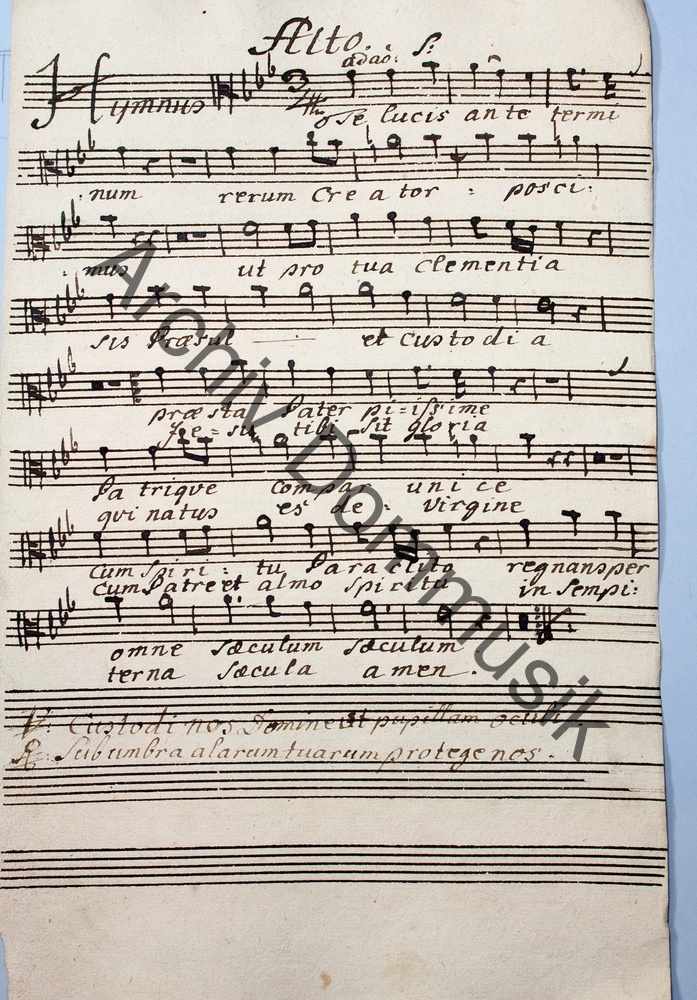 Alto.
adaõ: S:
Hymnus
Te lucis ante termi
num rerum Creator : posci:
mus ut pro tua Clementia
sis Præsul et Custodia
præsta Pater pi=issime
Je=su tibi sit gloria
Patrique compar unice
qui natus es de : Virgine
Cum Spiri: tu Paraclito regnans per
Cum Patre et almo Spiritu in Sempi:
omne sæculum sæculum
terna sæcula amen.
V: Custodi nos Domine ut pupillam oculi
R: Sub umbra alarum tuarum protege nos.
Archiv Dommusik